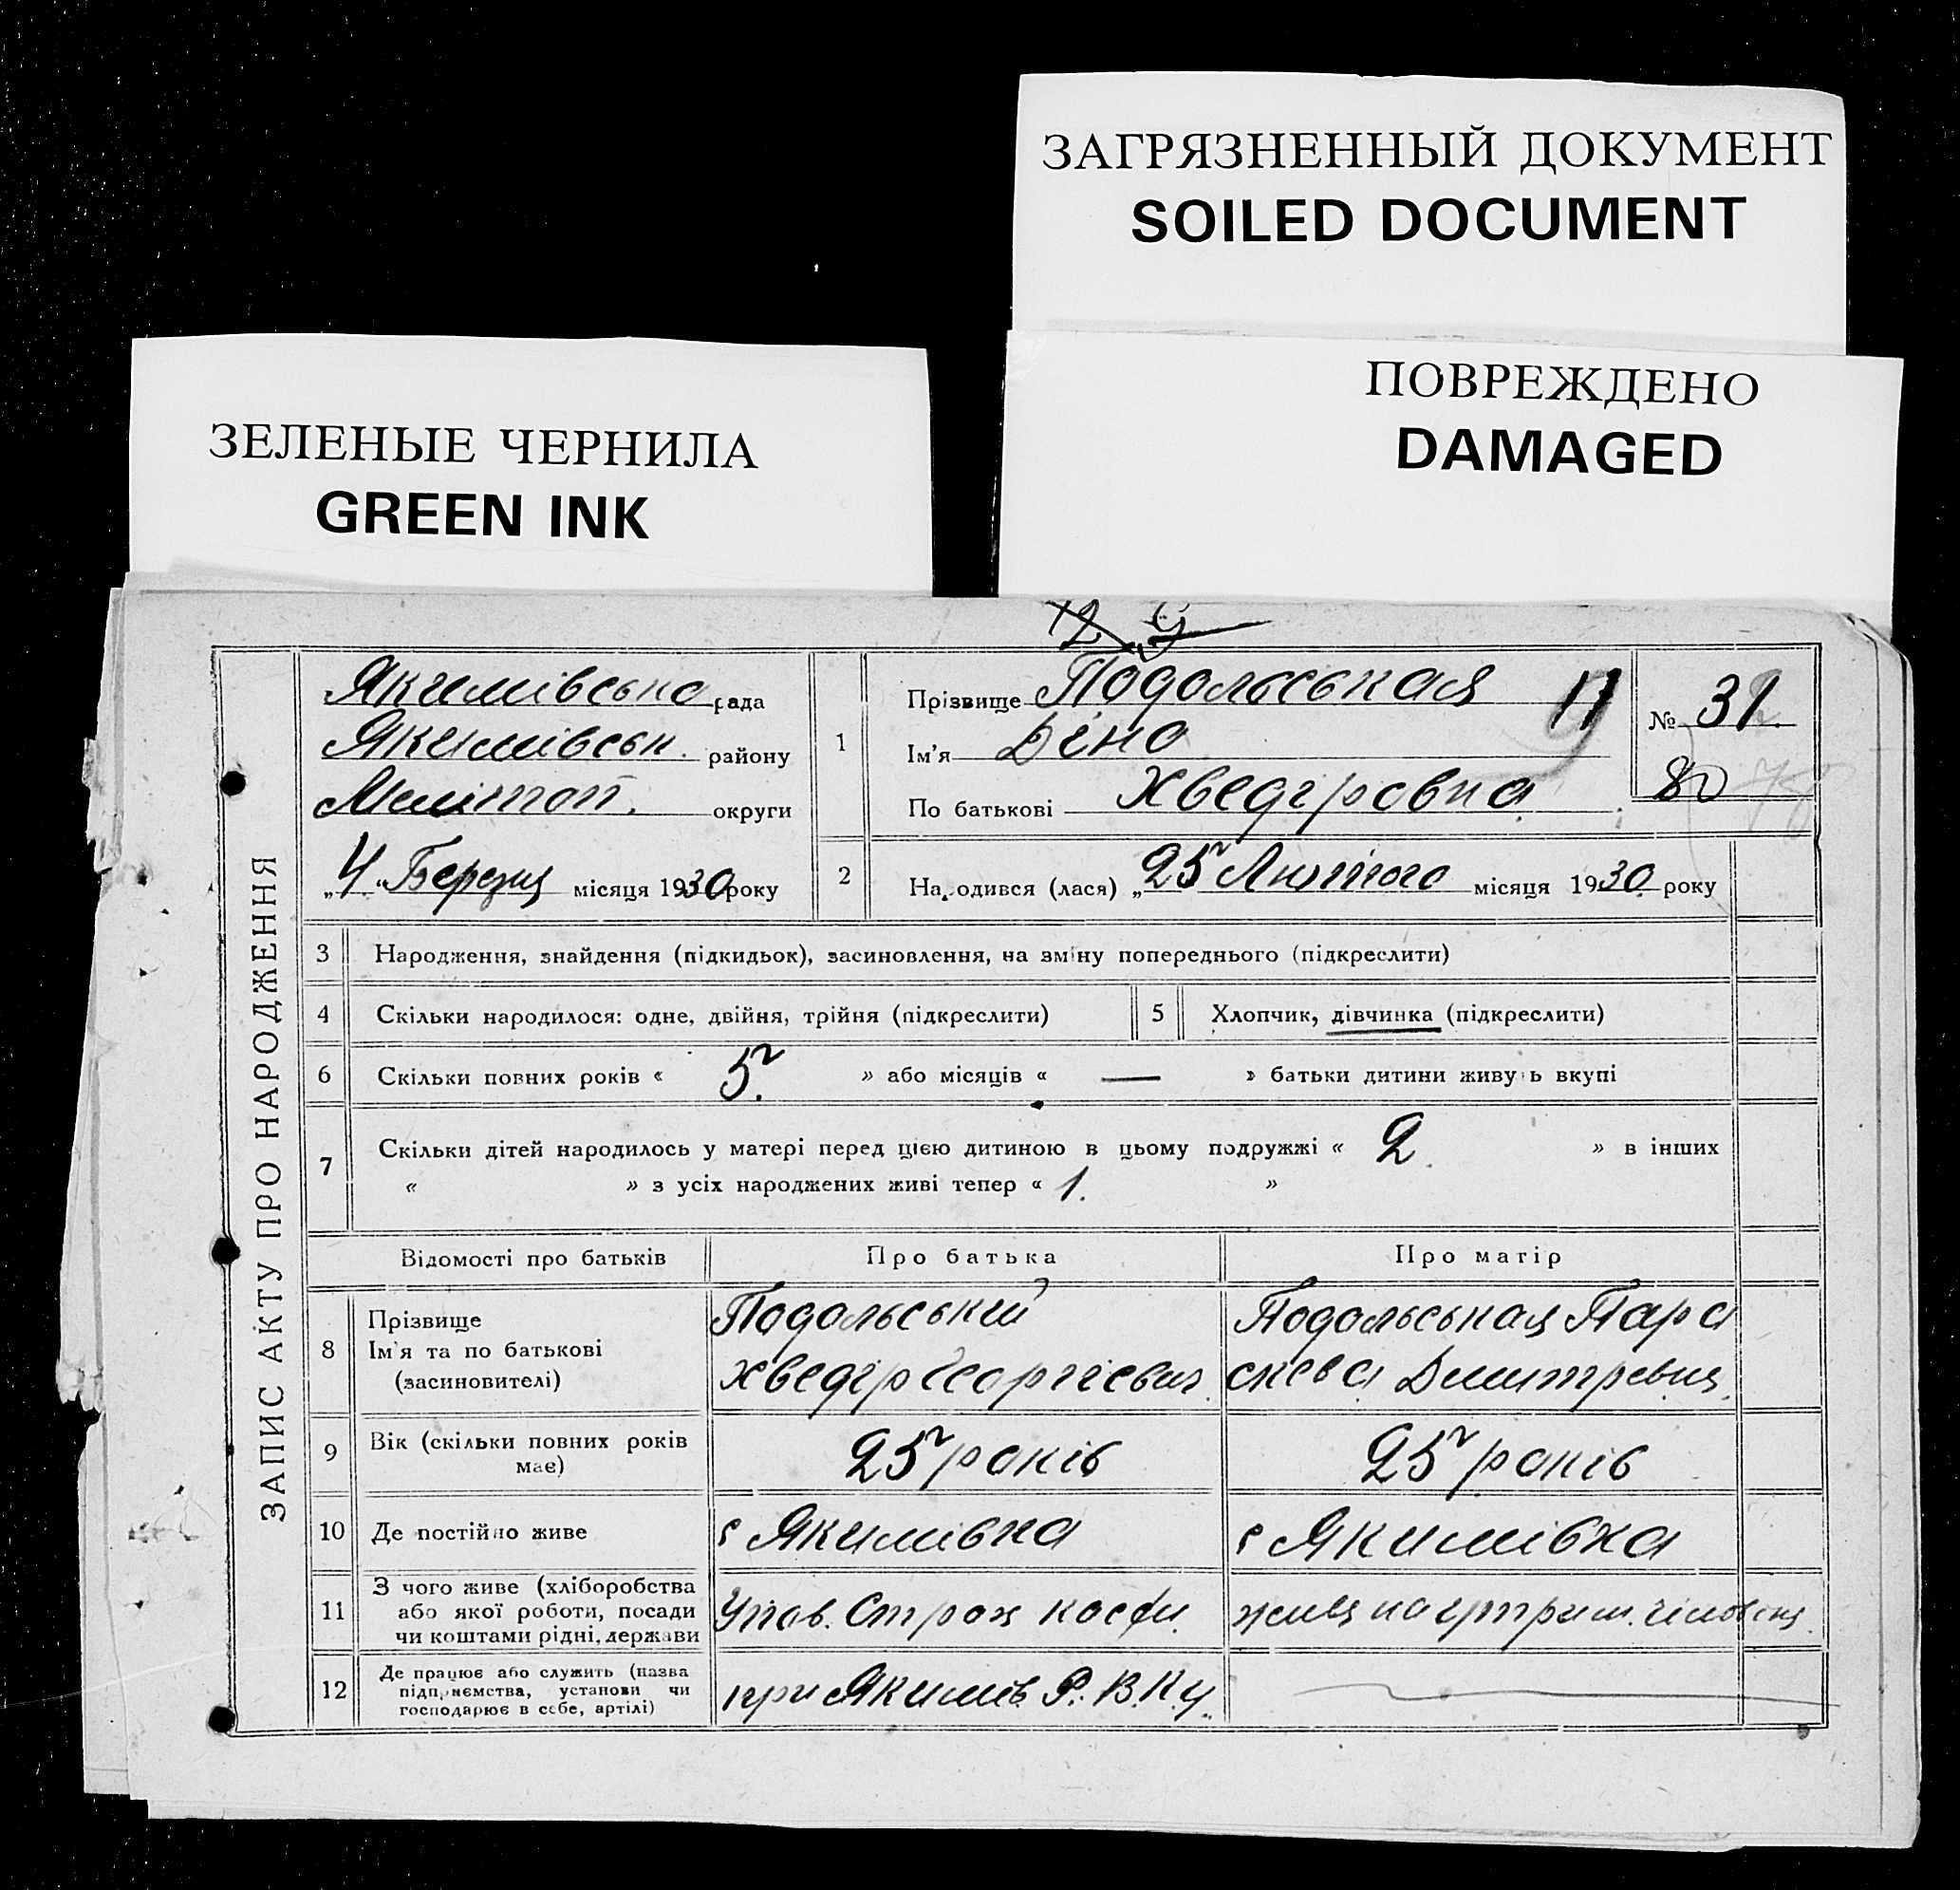 ЗАГРЯЗНЕННЫЙ ДОКУМЕНТ
SOILED DOCUMENT
ПОВРЕЖДЕНО
DAMAGED
ЗЕЛЕНЫЕ ЧЕРНИЛА
GREEN INK
ЗАПИС АКТУ ПРО НАРОДЖЕННЯ
Якимівська рада
Якимівськ. району
Меліитоп. округи
„4 „Березня місяця 1930 року
1
Прізвище Подольськая 11
Ім'я Діна
По батькові Хведіровна
№ 31
80
2
Народився (лася) „25 Лютого місяця 1930 року
3 Народження, знайдення (підкидьок), засиновлення, на зміну попереднього (підкреслити)
4 Скільки народилося: одне, двійня, трійня (підкреслити) 5 Хлопчик, дівчинка (підкреслити)
6 Скільки повних років « 5. » або місяців « — » батьки дитини живуть вкупі
7 Скільки дітей народилось у матері перед цією дитиною в цьому подружжі « 2. » в інших
« » з усіх народжених живі тепер « 1. »
Відомості про батьків Про батька Про матір
8 Прізвище
Ім'я та по батькові
(засиновителі)
Подольський
Хведір Георгієвич.
Подольськая Пара
скева Дмитревна.
9 Вік (скільки повних років
має)
25 років
25 років
10 Де постійно живе с Якимівка с Якимівка
11 З чого живе (хліборобства
або якої роботи, посади
чи коштами рідні, держави
Упов. Страх каси.
живе на утрим. чіловіка.
12 Де працює або служить (назва
підприємства, установи чи
господарює в себе, артілі)
при Якимів. Р. В. К. у.